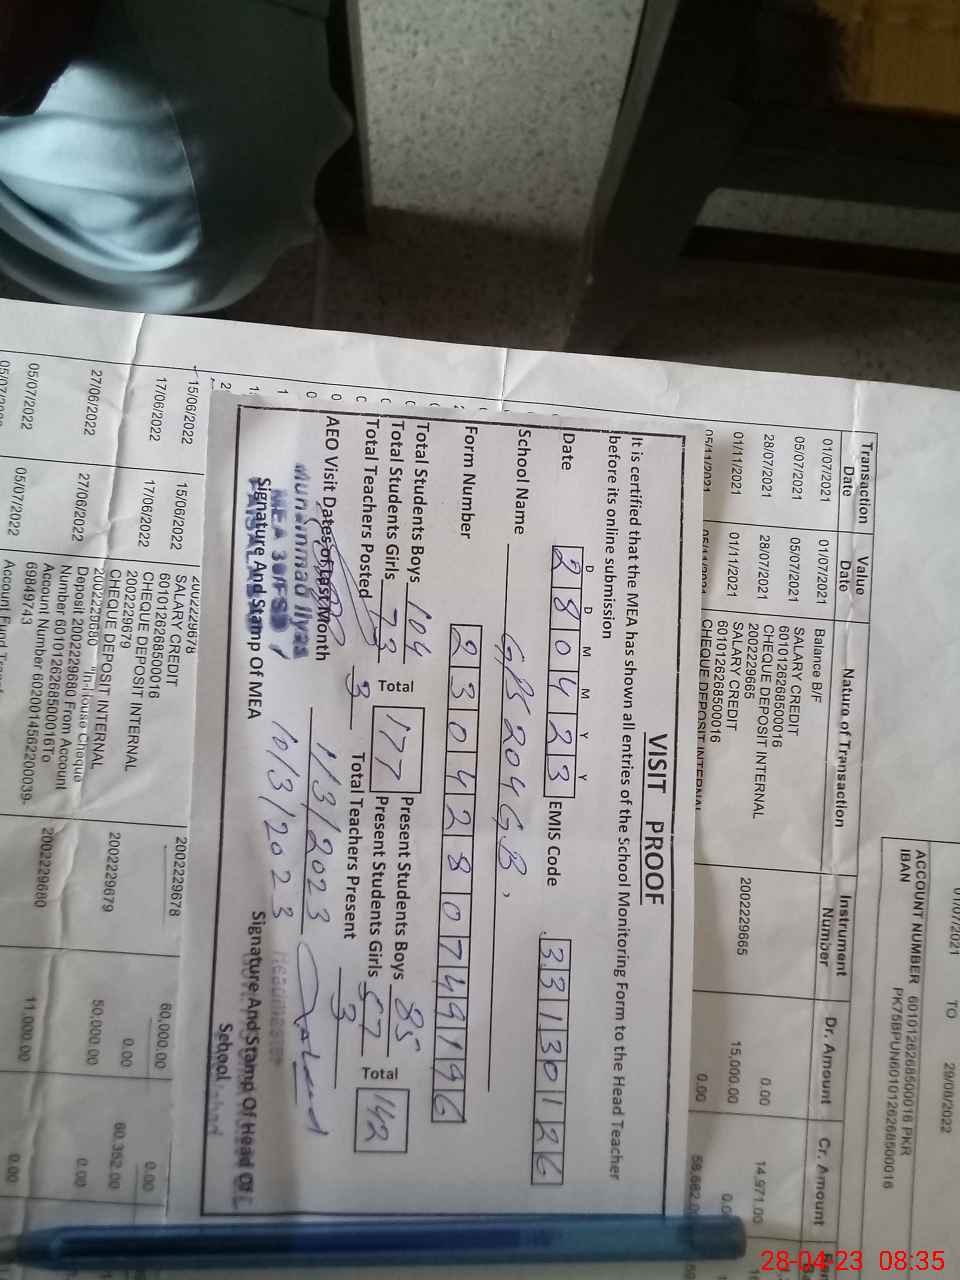 01/07/2021 TO 29/08/2022
ACCOUNT NUMBER 6010126268500016 PKR
IBAN PK75BPUN6010126268500016
Transaction Date Value Date Nature of Transaction Instrument Number Dr. Amount Cr. Amount
01/07/2021 01/07/2021 Balance B/F
05/07/2021 05/07/2021 SALARY CREDIT 6010126268500016 0.00 14,971.00
28/07/2021 28/07/2021 CHEQUE DEPOSIT INTERNAL 2002229665 2002229665 15,000.00
01/11/2021 01/11/2021 SALARY CREDIT 6010126268500016 0.00
05/11/2021 05/11/2021 CHEQUE DEPOSIT INTERNAL
VISIT PROOF
It is certified that the MEA has shown all entries of the School Monitoring Form to the Head Teacher
before its online submission
D D M M Y Y
Date 280423 EMIS Code 33130126
School Name GPS 204 GB,
Form Number 2304280749196
Total Students Boys 104 Present Students Boys 85
Total 177 Total 142
Total Students Girls 73 Present Students Girls 57
Total Teachers Posted 3 Total Teachers Present 3
AEO Visit Dates of Last Month 1/3/2023
10/3/2023
Muhammad Ilyas
MEA
Headmaster
Signature And Stamp Of MEA Signature And Stamp Of Head Of
School
2002229678
15/06/2022 15/06/2022 SALARY CREDIT 2002229678 60,000.00
6010126268500016
17/06/2022 17/06/2022 CHEQUE DEPOSIT INTERNAL 0.00
2002229679 2002229679 0.00 60,352.00
CHEQUE DEPOSIT INTERNAL
27/06/2022 27/06/2022 2002229680 "In-House Cheque 50,000.00 0.00
Deposit 2002229680 From Account
Number 6010126268500016To
Account Number 6020014562200039-
69849743
05/07/2022 05/07/2022 2002229680 11,000.00 0.00
28-04-23 08:35